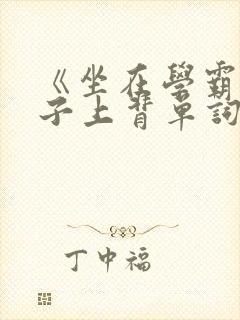 《坐在學霸
子上背單詞
丁中福